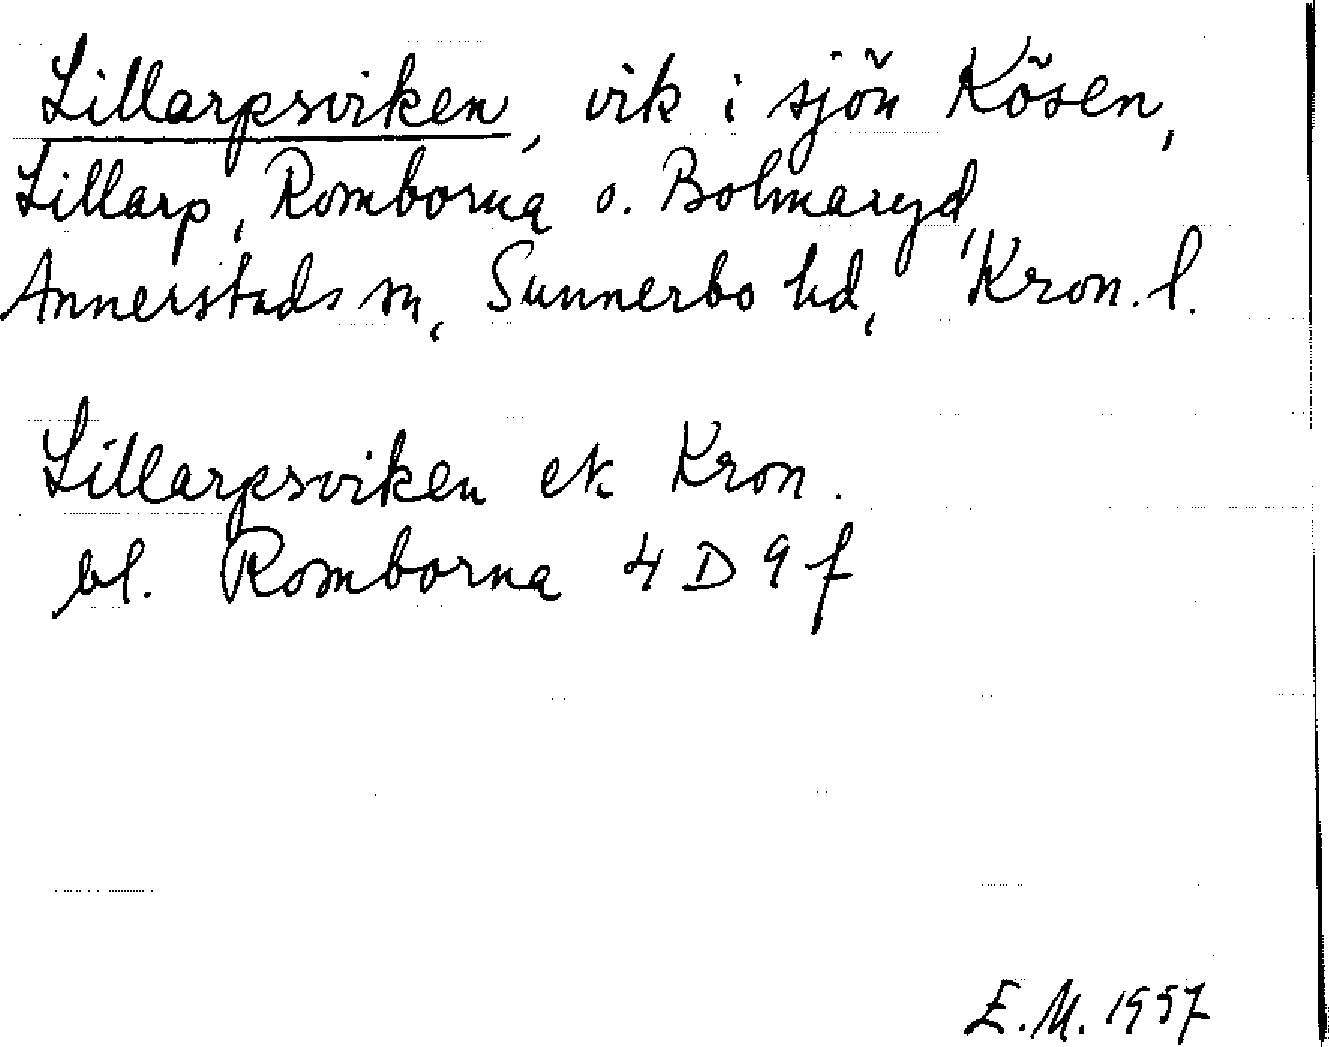 Lillarpsviken, vik i sjön Kösen,
Lillarp, Romborna o. Bolmaryd,
Annerstads sn, Sunnerbo hd, Kron. l.
Lillarpsviken ek. Kron.
bl. Romborna 4 D 9 f
E.M. 1957